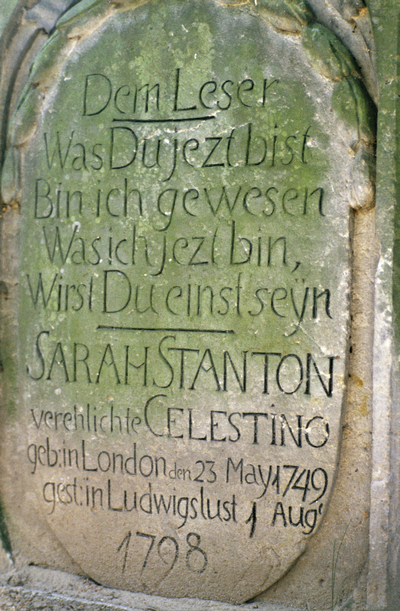 Dem Leser
Was Du jezt bist
Bin ich gewesen
Was ich jezt bin,
Wirst Du einst seÿn
SARAH STANTON
verehlichte CELESTINO
geb: in London den 23 May 1749
gest: in Ludwigslust 1 Augs
1798